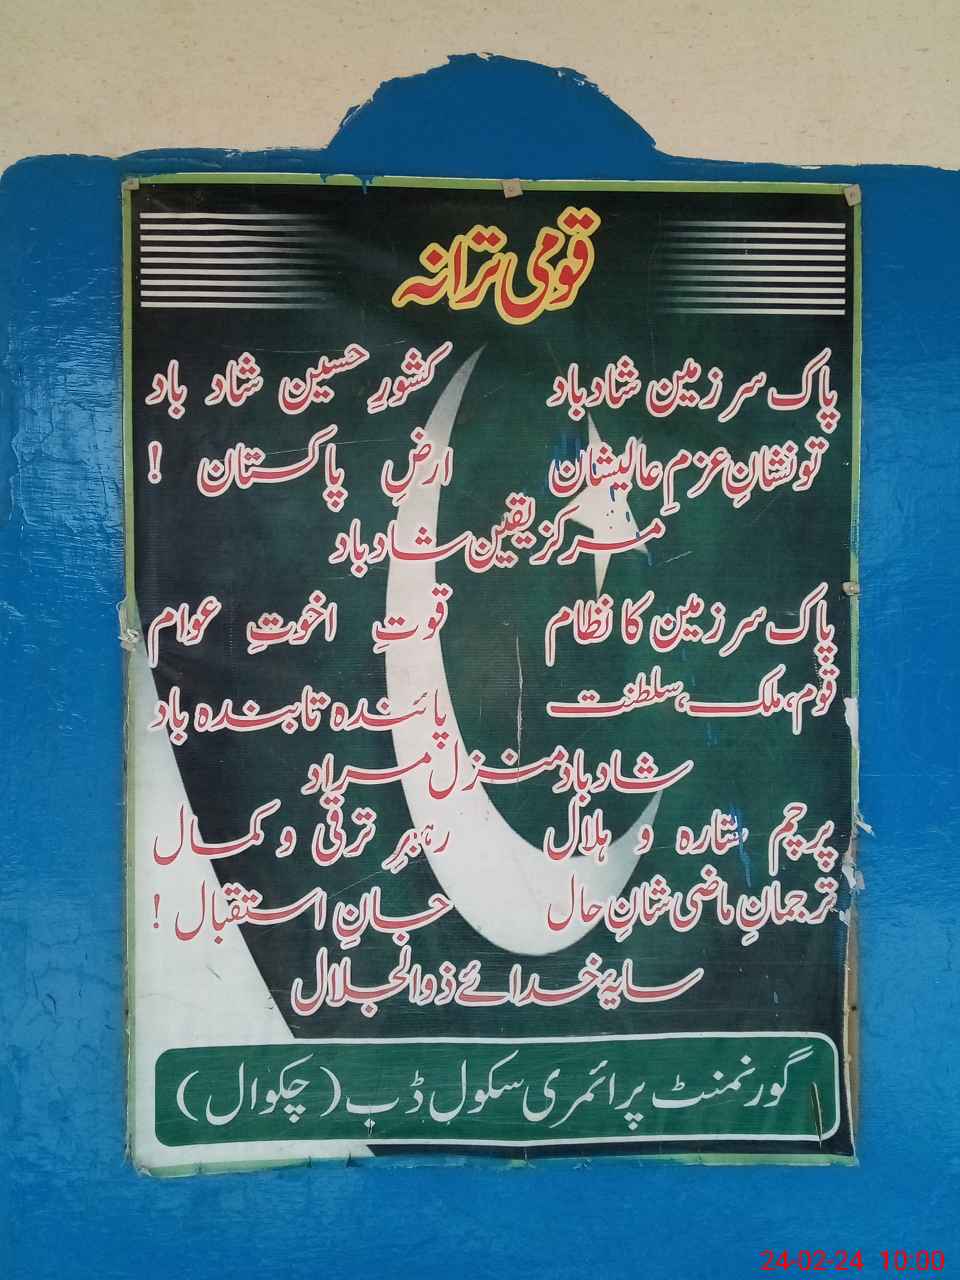 قومی ترانہ
پاک سرزمین شاد باد کشورِ حسین شاد باد
تو نشانِ عزمِ عالیشان ارضِ پاکستان !
مرکز یقین شاد باد
پاک سرزمین کا نظام قوتِ اخوتِ عوام
قوم، ملک، سلطنت پائندہ تابندہ باد
شاد باد منزل مراد
پرچم ستارہ و ہلال رہبرِ ترقی و کمال
ترجمانِ ماضی شانِ حال جانِ استقبال !
سایۂ خدائے ذوالجلال
گورنمنٹ پرائمری سکول ڈب (چکوال)
24-02-24 10:00